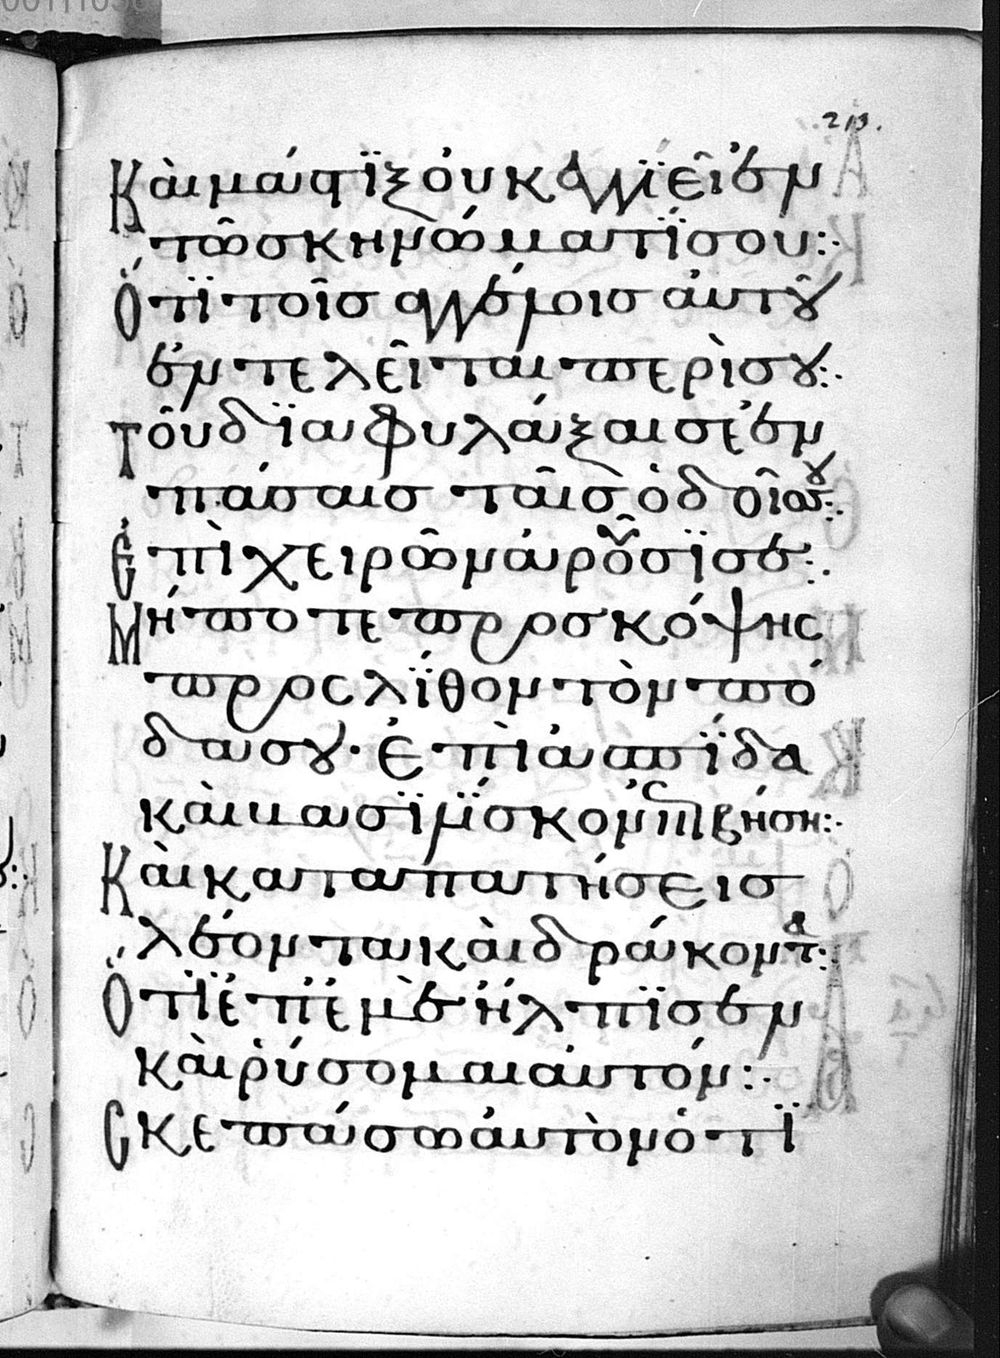 00111056
213.
Κὰι μάστϊξ ὀυκ ἀγγϊεῖ ἐν
τῶ σκηνώματΐ σου:·
Ὅτϊ τοῖσ ἀγγέλοισ ἀυτοῦ
ἐντελεῖται περὶ σου:·
Τοῦ δϊαφυλάξαι σε ἐν
πάσαισ ταῖσ ὁδοῖσ σου:·
Ἐπὶ χειρῶν ἀροῦσϊ σε:·
Μήποτε προσκόψης
προς λΐθον τὸν πό
δα σου· Ἐπὶ ἀσπΐδα
κὰι βασϊλΐσκον ἐπϊβήση:·
Κὰι καταπατήσεισ
λέοντα κὰι δράκοντα:·
Ὅτϊ ἐπ ἐμὲ ἤλπϊσεν
κὰι ῥύσομαι ἀυτόν:·
Σκεπάσω ἀυτὸν ὁτϊ